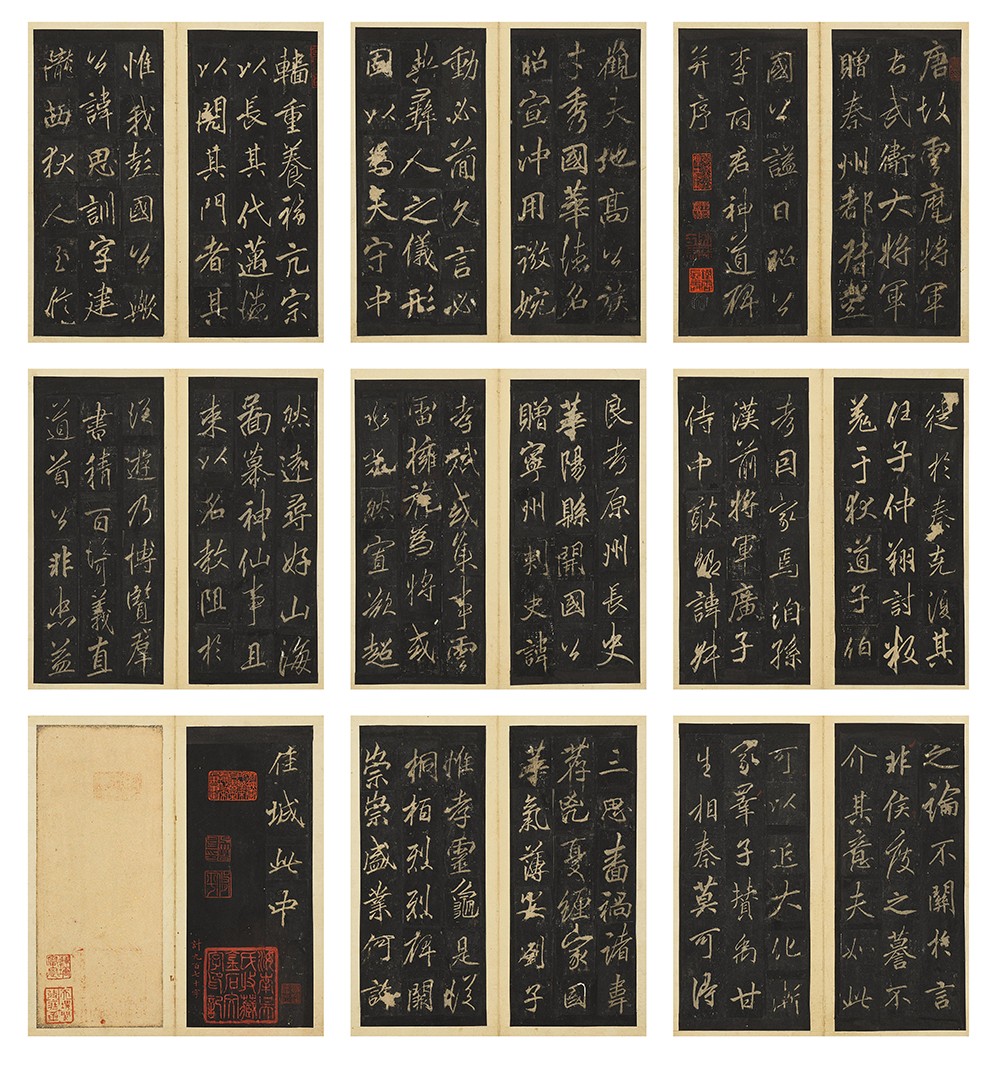 唐故雲麾將軍
右武衛大將軍
贈秦州都督彭
國公謚曰昭公
李府君神道碑
并序
觀夫地高公族
才秀國華德名
昭宣沖用微婉
動必簡久言必
典彝人之儀形
國以為天守中
轓重養福亢宗
以長其代邁德
以閎其門者其
惟我彭國公歟
公諱思訓字建
隴西狄人至於
徙於秦克復其
任子仲翔討叛
羌于狄道子伯
考因家焉洎孫
漢前將軍廣子
侍中敢諱
良考原州長史
華陽縣開國公
贈寧州刺史諱
孝斌或集事雲
雷擁旄為將或
然欲超
然遠尋好山海
啚慕神仙事且
束以名教阻於
從遊乃博覽羣
書精百藝義直
道首公非忠益
之論不關於言
非侯度之謩不
介其意夫如此
可以近大化漸
家羣子贊禹甘
生相秦莫可得
三思畜禍諸韋
荐凶憂纏家國
氣薄安劉子
惟孝靈龜是從
桐柏烈烈碑闕
崇崇盛業何許
佳城此中